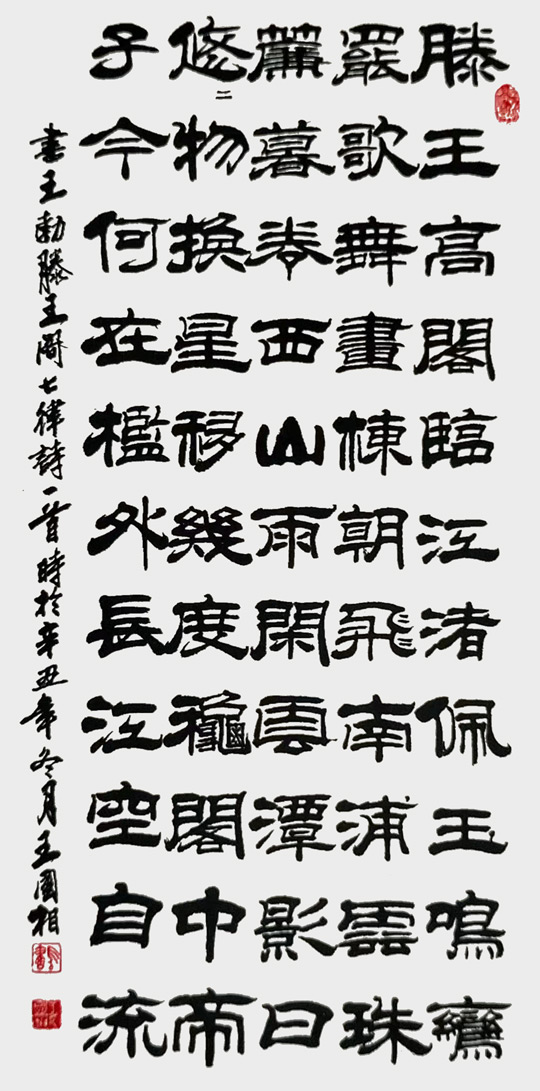 滕王高閣臨江渚佩玉鳴鸞
罷歌舞畫棟朝飛南浦雲珠
簾暮卷西山雨閑雲潭影日
悠〻物換星移幾度穐閣中帝
子今何在檻外長江空自流
書王勃滕王閣七律詩一首時於辛丑年冬月王國相